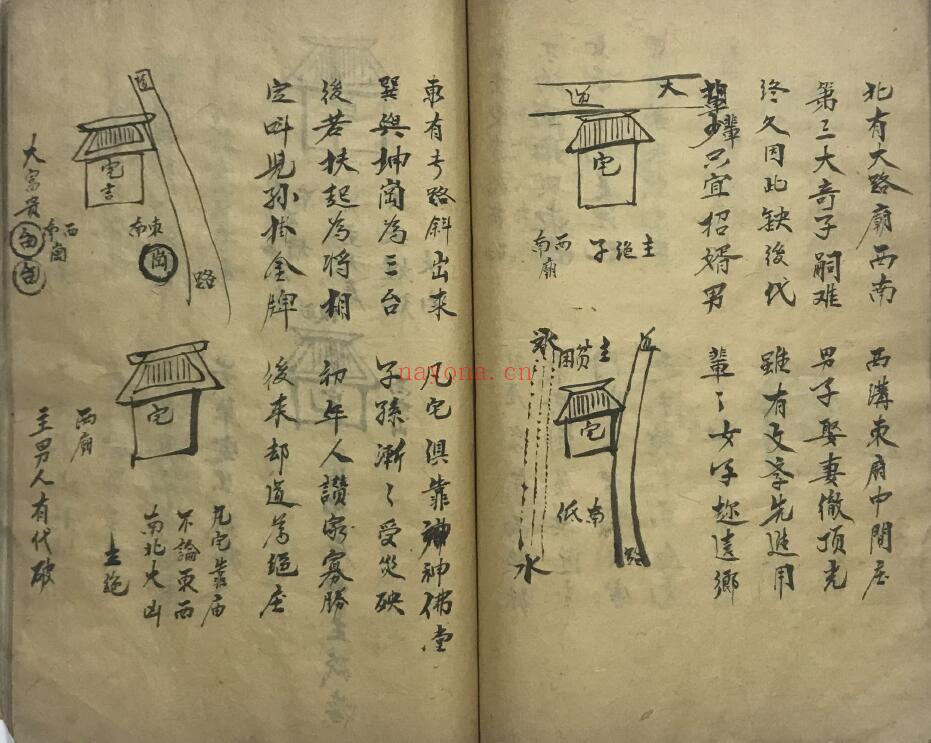 北有大路廟西南
第三大奇子嗣难
终久因此缺後代
輩輩只宜招婿男
大
路
宅
西南廟
主絕子
西溝東府中間庄
男子娶妻徹頂光
雖有文字先進用
輩〻女子趂遠鄉
水
主貧困
路
宅
南低
水
路
東有弓路斜出來
巽與坤崗為三台
後若扶起為將相
定叫兒孫掛金牌
崗
宅吉
東南
崗
路
西南崗
大富貴
凡宅俱靠神佛堂
子孫漸〻受災殃
初年人讚家寡勝
後来却道為絕庄
宅
凡宅靠庙
不論東西
南北火山
主絕
西廟
主男人有代破
nayona.cn